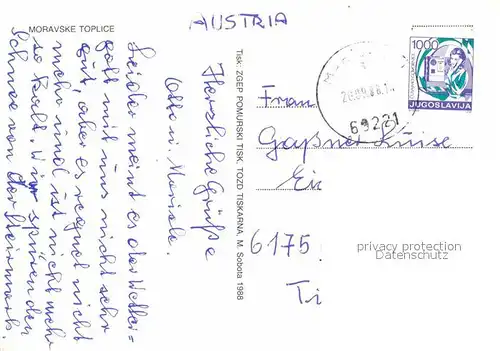 MORAVSKE TOPLICE
AUSTRIA
Leider meint es der Wetter-
gott mit uns nicht sehr
gut, aber es regnet nicht
mehr und ist nicht mehr
so kalt. Wir spüren den
Schnee von der Steiermark.
Herzliche Grüße
Otto u.
Tisk: ZGEP POMURSKI TISK, TOZD TISKARNA, M. Sobota 1988
1000
JUGOSLAVIJA
69221
Frau
Gaßner Luise
Ei
6175
Ti
privacy protection
Datenschutz